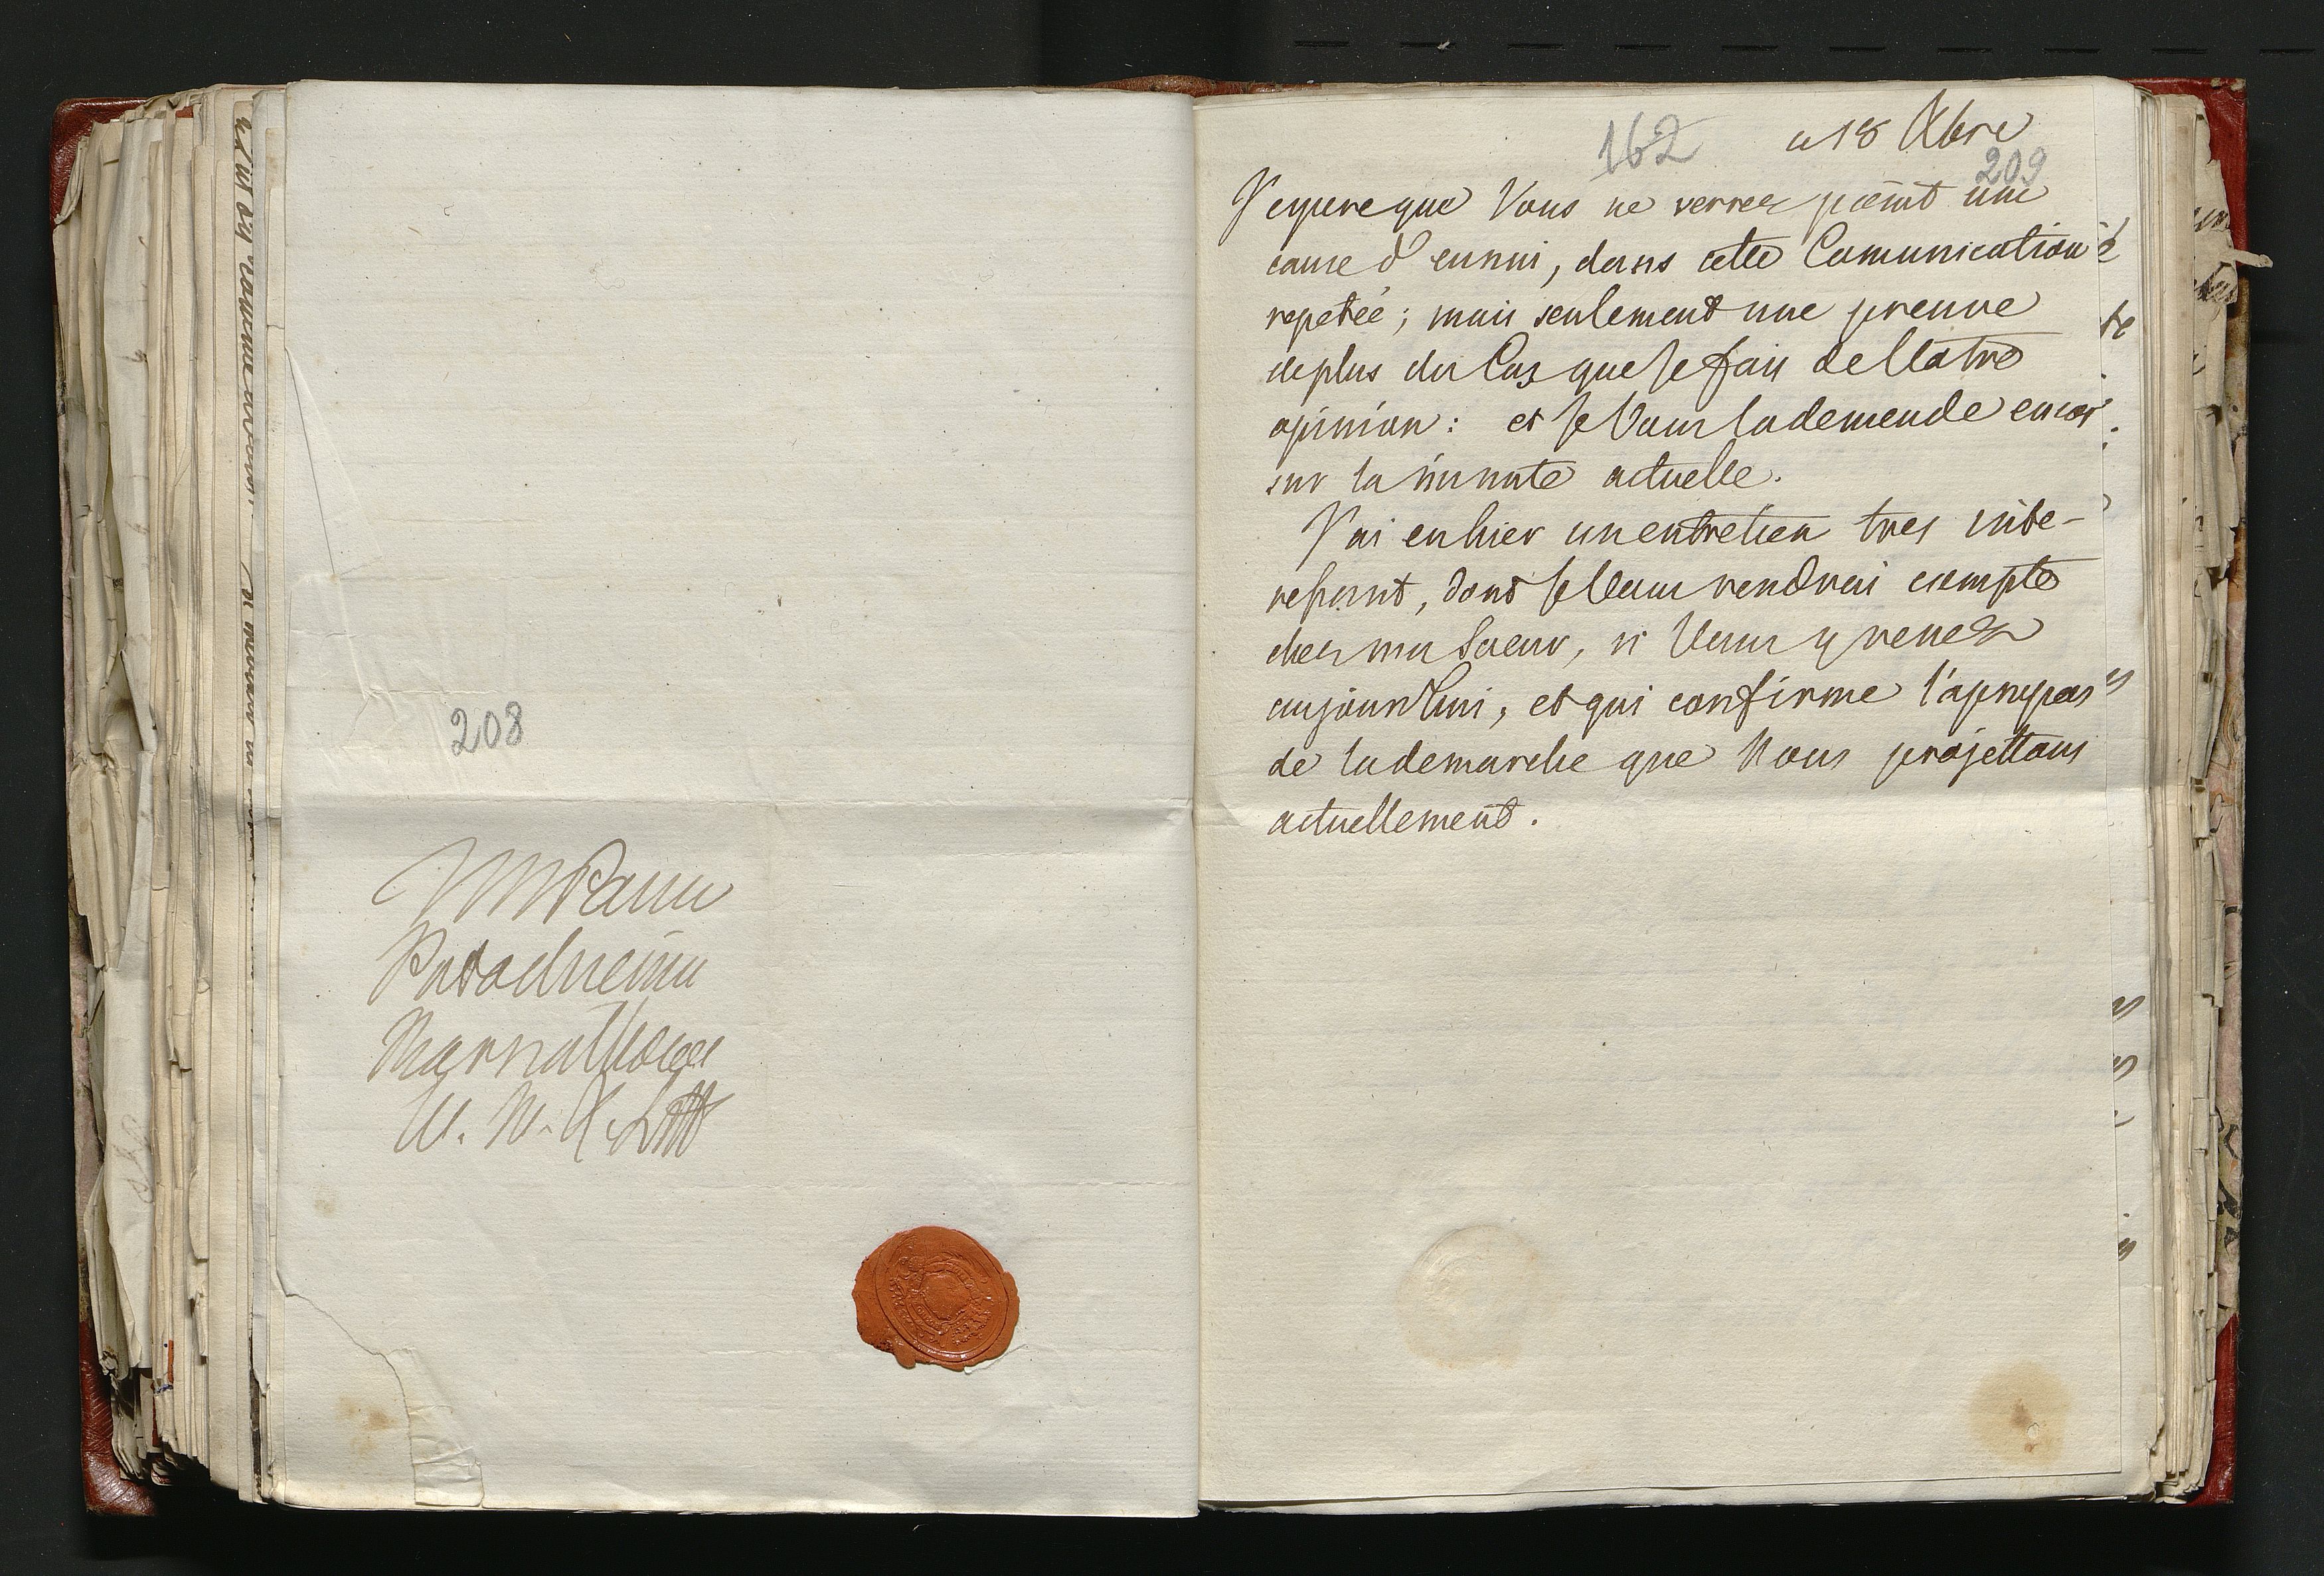 208
JMPanu
Potockiemu
Marszałkowi
W. W. X. Litt
162
a 18 Xbre
209
J'espere que Vous ne verrez point une
cause d'ennui, dans cette Comunication
repetée; mais seulement une preuve
de plus du Cas que Je fais de Votre
opinion: et Je Vous la demende encor
sur la minute actuelle.
J'ai eu hier un entretien tres inte-
ressant, dont Je Vous rendrai compte
chez ma Soeur, si Vous y venez
aujourdhui, et qui confirme l'apropos
de la demarche que Nous projettons
actuellement.